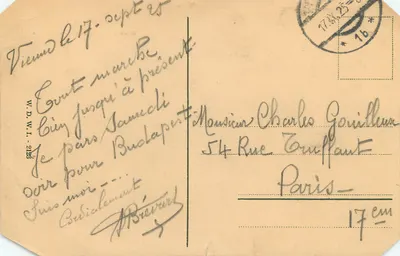 Vienne le 17 - sept 25
Tout marche
bien jusqu'à présent
Je pars Samedi
soir pour Budapest
Suis moi ----
Cordialement
W. D. W. I. - 2126
17.IX.25
* 1b *
Monsieur Charles Gouilleux
54 Rue Truffaut
Paris
17em